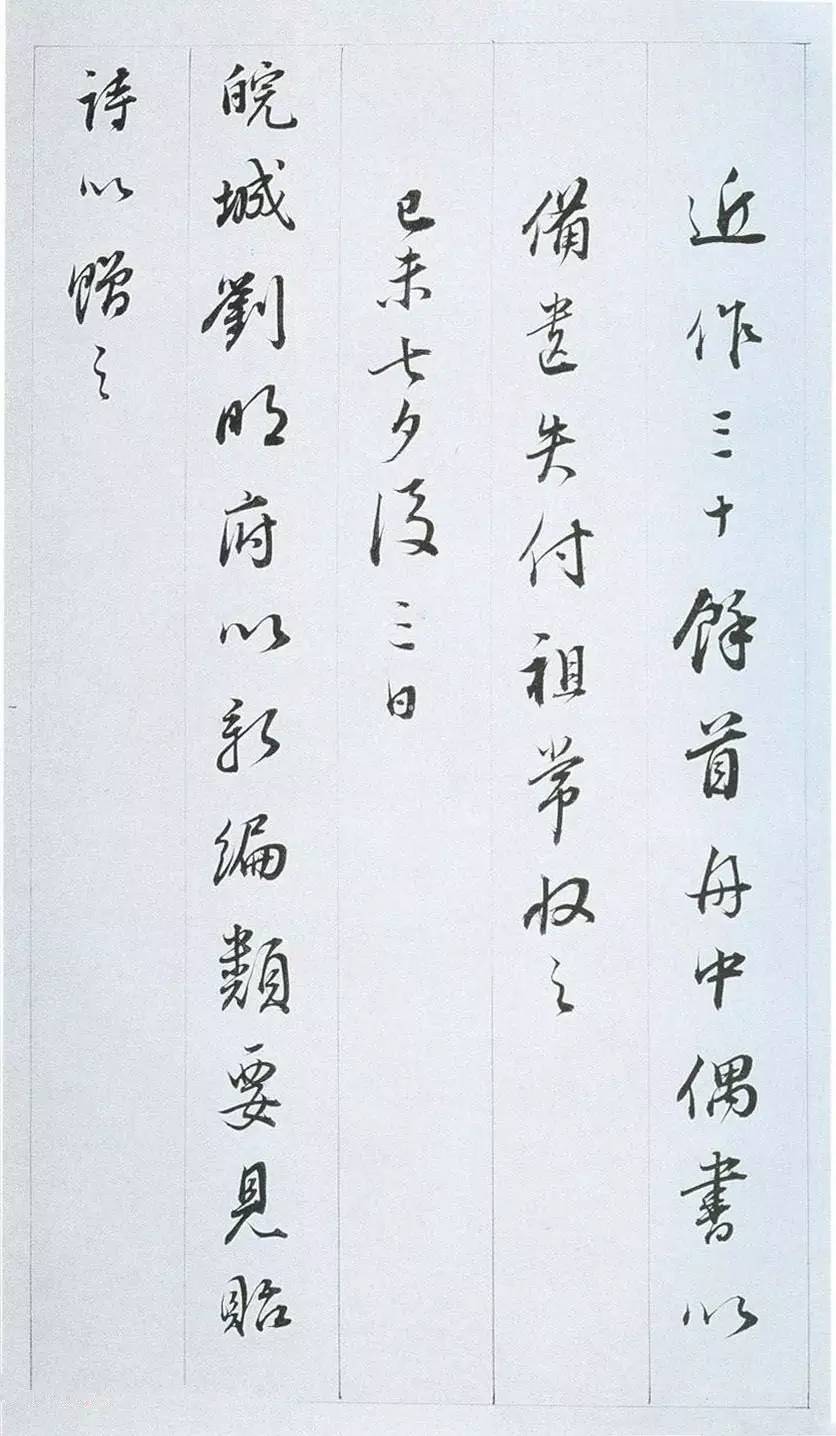 近作三十餘首舟中偶書以
備遺失付祖常收之
己未七夕後三日
皖城劉明府以新編類要見貽
詩以贈之